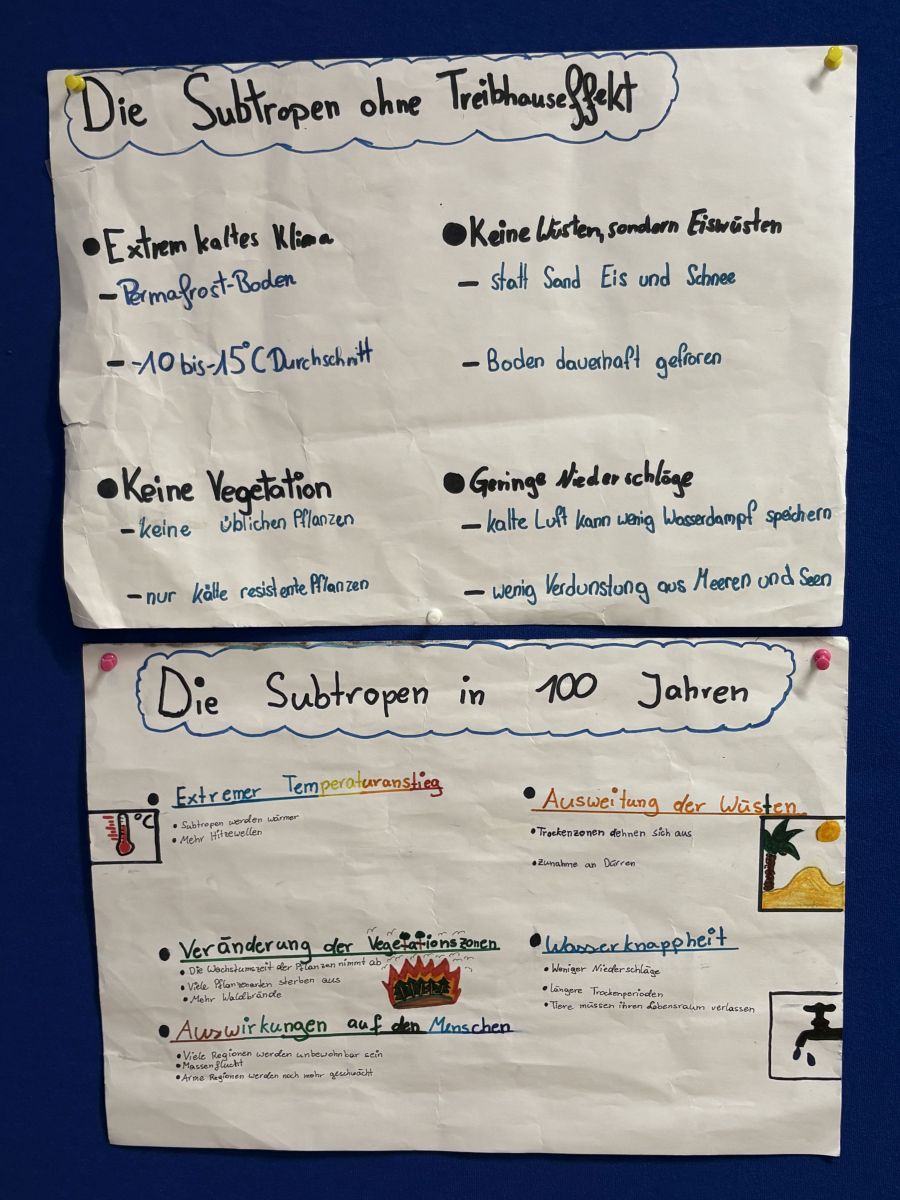 Die Subtropen ohne Treibhauseffekt
● Extrem kaltes Klima
– Permafrost-Boden
– -10 bis -15°C Durchschnitt
● Keine Wüsten, sondern Eiswüsten
– statt Sand Eis und Schnee
– Boden dauerhaft gefroren
● Keine Vegetation
– keine üblichen Pflanzen
– nur kälte resistente Pflanzen
● Geringe Niederschläge
– kalte Luft kann wenig Wasserdampf speichern
– wenig Verdunstung aus Meeren und Seen
Die Subtropen in 100 Jahren
● Extremer Temperaturanstieg
• Subtropen werden wärmer
• Mehr Hitzewellen
°C
● Ausweitung der Wüsten
• Trockenzonen dehnen sich aus
• Zunahme an Dürren
● Veränderung der Vegetationszonen
• Die Wachstumszeit der Pflanzen nimmt ab
• Viele Pflanzenarten sterben aus
• Mehr Waldbrände
● Wasserknappheit
• Weniger Niederschläge
• längere Trockenperioden
• Tiere müssen ihren Lebensraum verlassen
● Auswirkungen auf den Menschen
• Viele Regionen werden unbewohnbar sein
• Massenflucht
• Arme Regionen werden noch mehr geschwächt